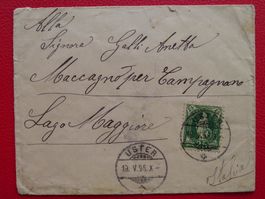 Alla
Signora Galli Anetta
Maccagno per Campagnano
Lago Maggiore
USTER
19. V. 95. X -
Italia